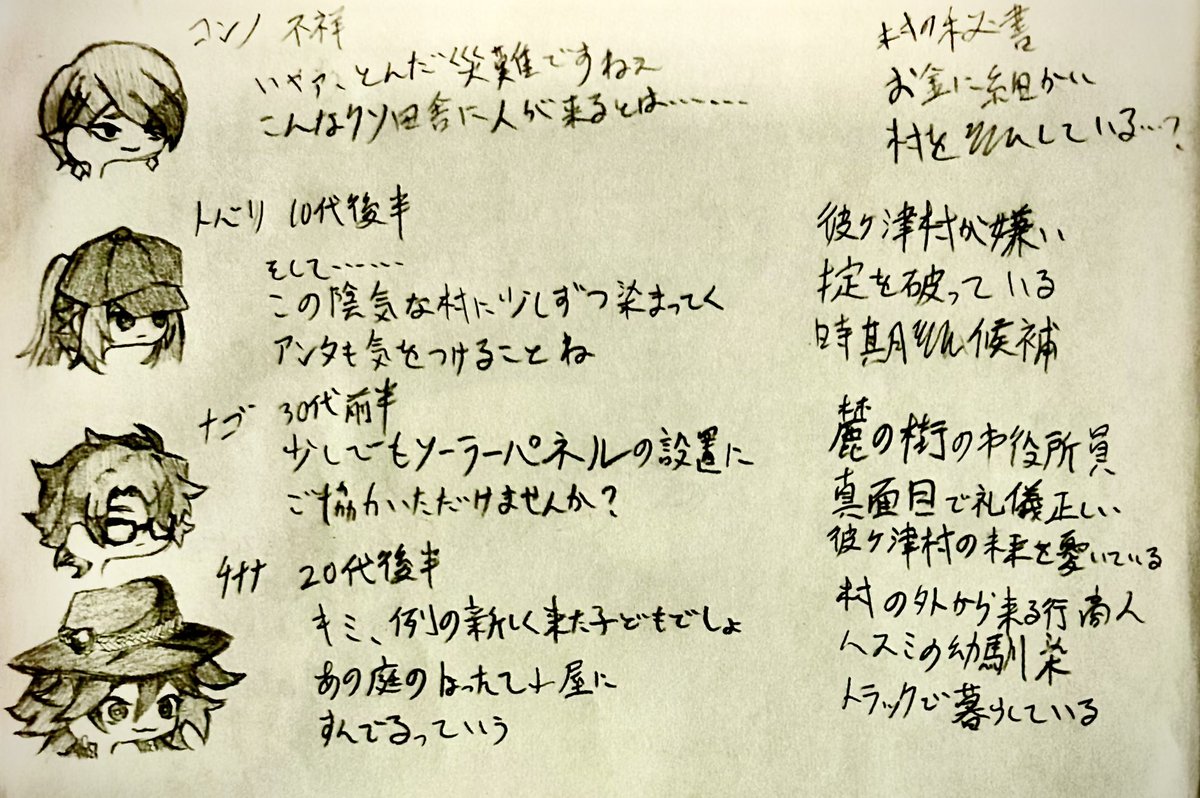 コンノ 不祥
いやァ、とんだ災難ですねェ
こんなクソ田舎に人が来るとは……
村の秘書
お金に細かい
村を している…?
トバリ 10代後半
そして……
この陰気な村に少しずつ染まってく
アンタも気をつけることね
彼ヶ津村が嫌い
掟を破っている
時期 候補
ナゴ 30代前半
少しでもソーラーパネルの設置に
ご協力いただけませんか?
麓の街の市役所員
真面目で礼儀正しい
彼ヶ津村の未来を憂いている
20代後半
キミ、例の新しく来た子どもでしょ
あの庭のほったて小屋に
すんでるっていう
村の外から来る行商人
ハスミの幼馴染
トラックで暮らしている